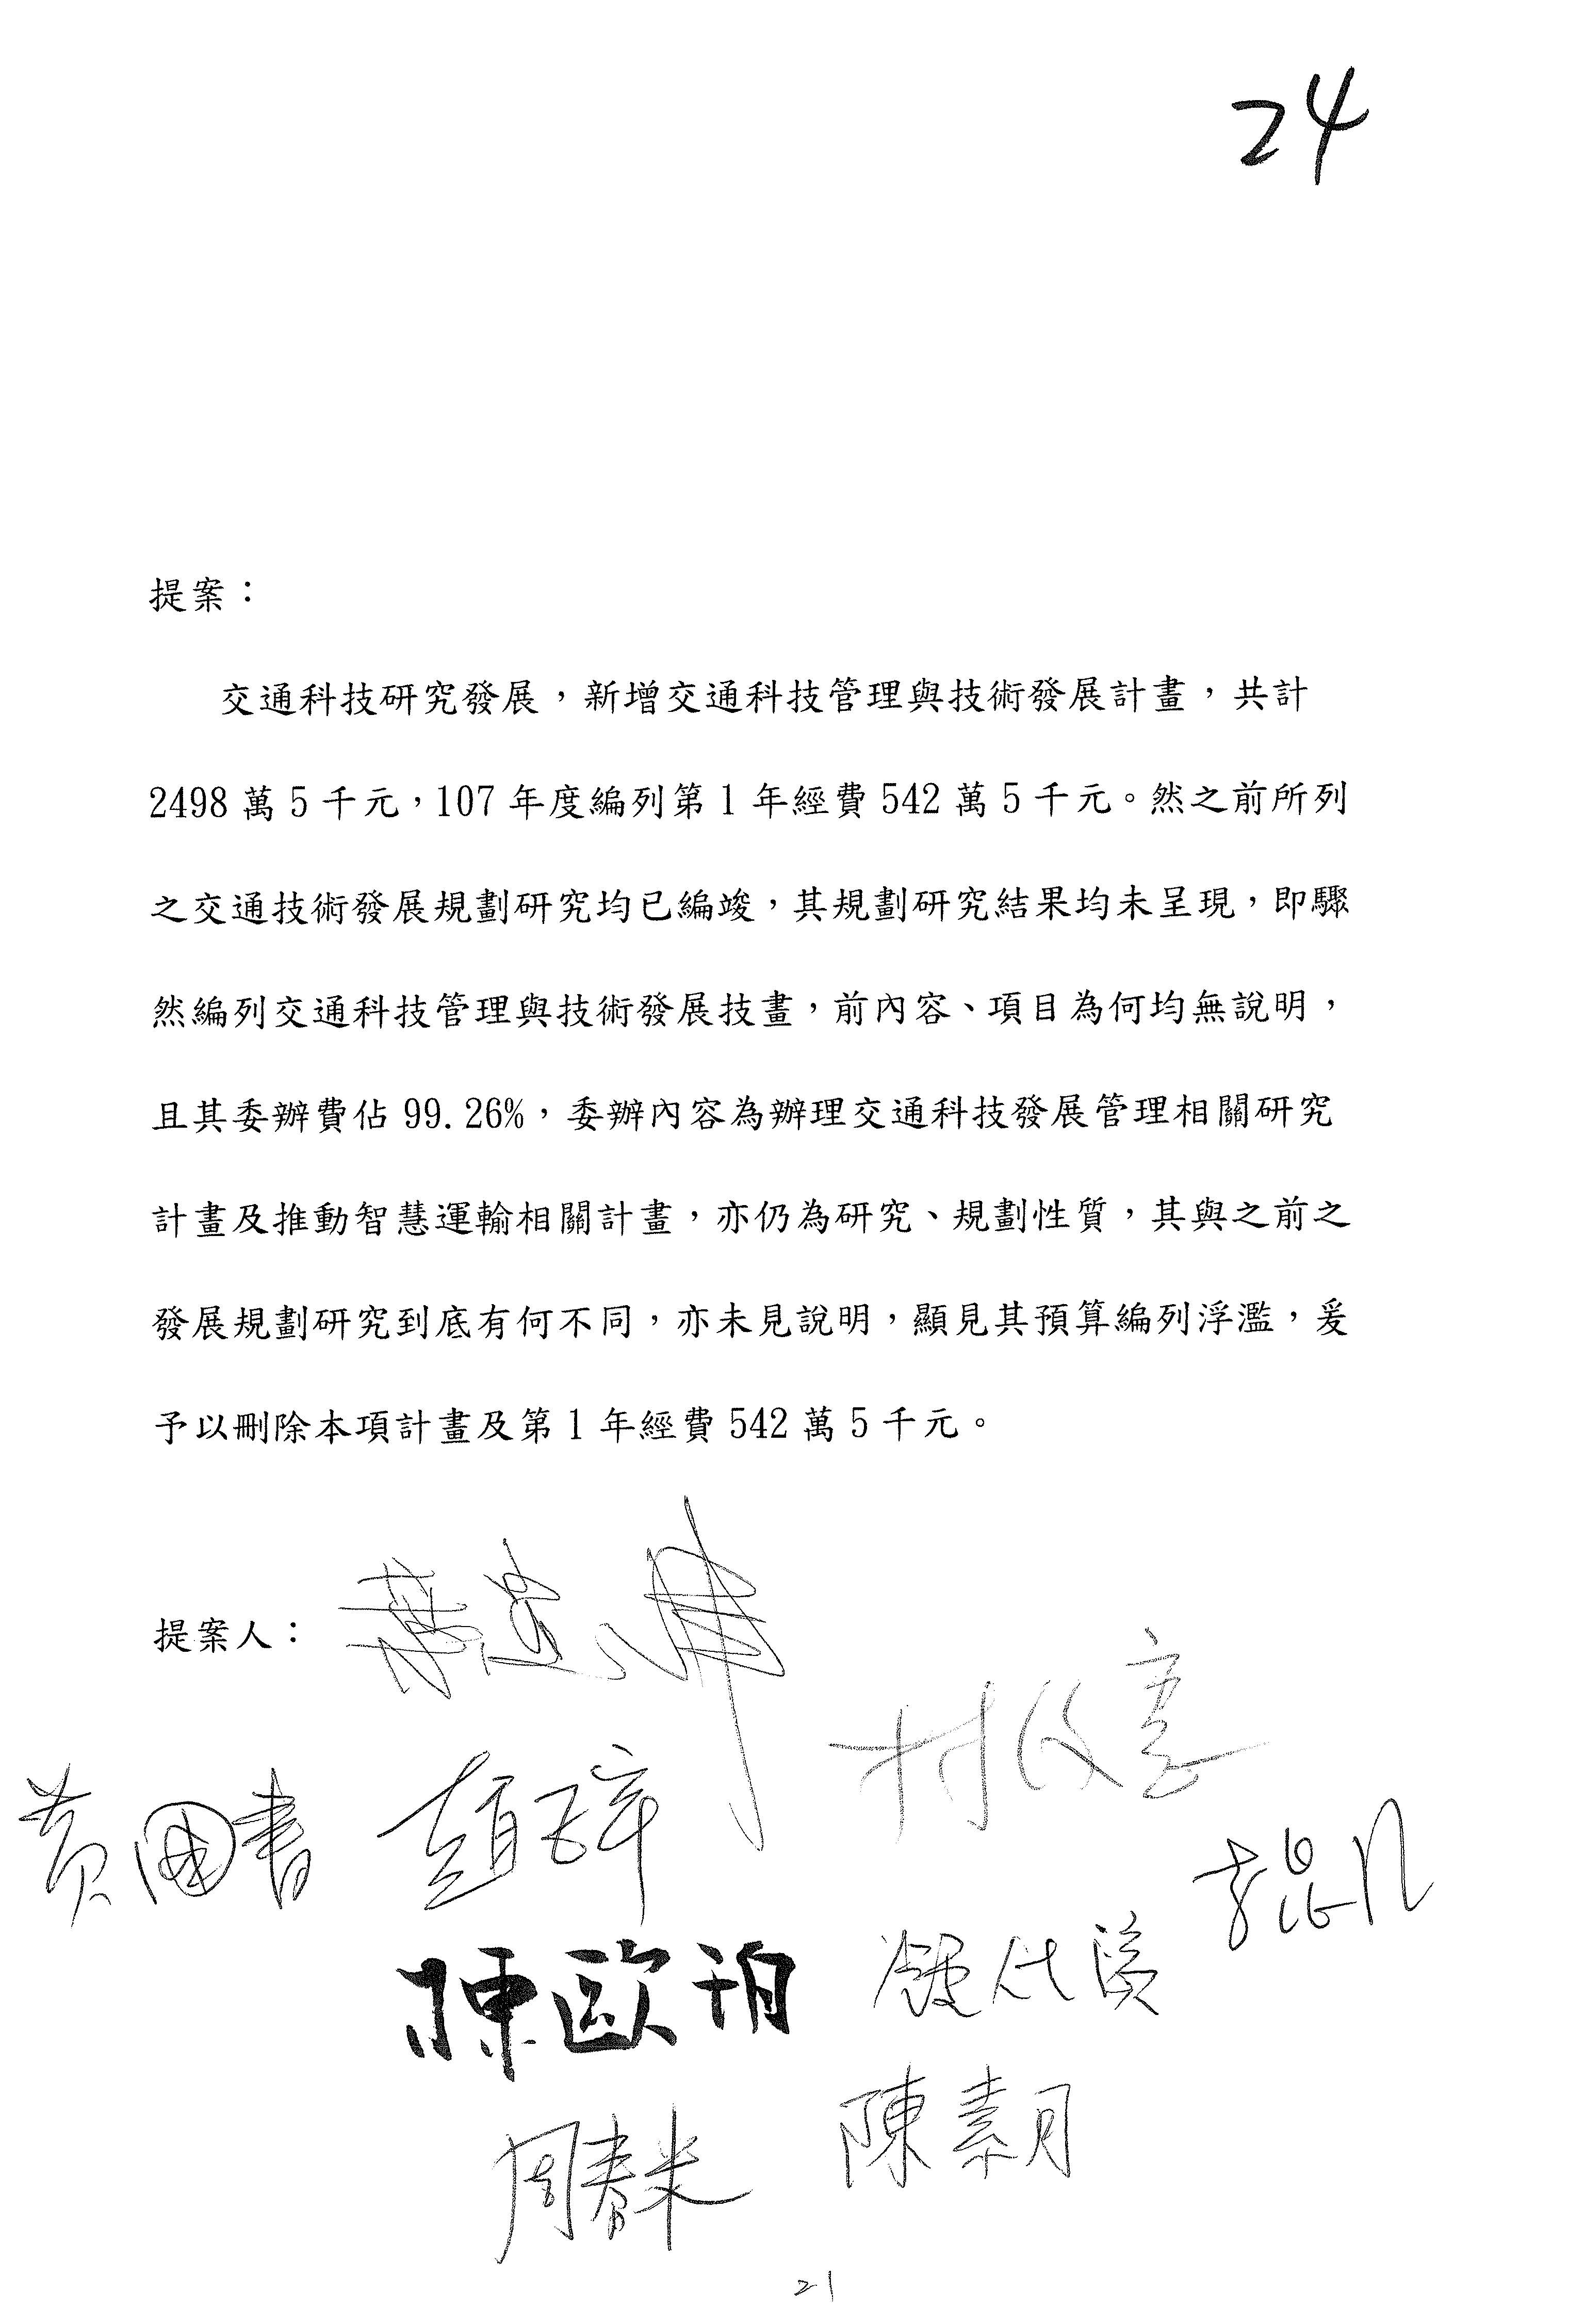 24
提案：
交通科技研究發展，新增交通科技管理與技術發展計畫，共計
2498 萬 5 千元，107 年度編列第 1 年經費 542 萬 5 千元。然之前所列
之交通技術發展規劃研究均已編竣，其規劃研究結果均未呈現，即驟
然編列交通科技管理與技術發展技畫，前內容、項目為何均無說明，
且其委辦費佔 99.26%，委辦內容為辦理交通科技發展管理相關研究
計畫及推動智慧運輸相關計畫，亦仍為研究、規劃性質，其與之前之
發展規劃研究到底有何不同，亦未見說明，顯見其預算編列浮濫，爰
予以刪除本項計畫及第 1 年經費 542 萬 5 千元。
提案人：
黃國書
陳歐珀
陳素月
周春米
21